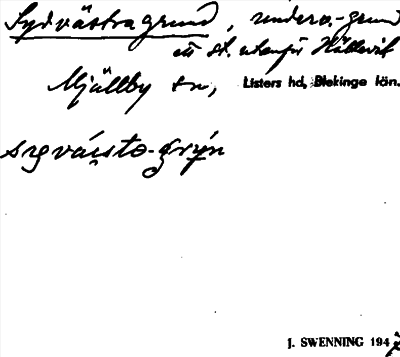 Sydvästra grund, underv.-grund
ett st. utanför Hällevik
Mjällby sn, Listers hd, Blekinge län.
sygväisto-grýn
J. SWENNING 194